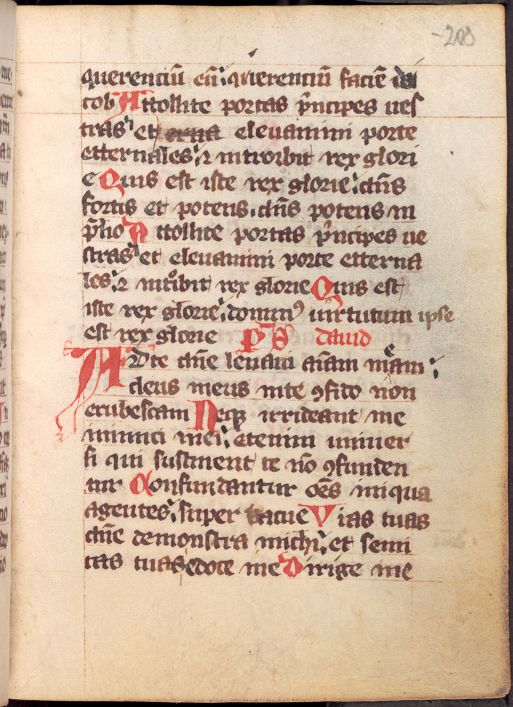 -208
querenciū eū: querenciū faciē dei
cob Attollite portas p̄ncipes ues
tras: et eleuamini porte
etternales: ⁊ introibit rex glori
e Quis est iste rex glorie: dn̄s
fortis et potens: dn̄s potens in
p̄lio Attollite portas p̄ncipes ue
stras: et eleuamini porte etterna
les: ⁊ introibit rex glorie Quis est
iste rex glorie: dominꝰ uirtutum ipse
est rex glorie ps dauid
AD te dn̄e leuaui aīam mēam:
deus meus inte ꝯfido non
erubescam Neqꝫ irrideant me
inimici mei: etenim uniuer
si qui sustinent te nō ꝯfunden
tur Confundantur oēs iniqua
agentes: super uacue Vias tuas
dn̄e demonstra michi: et semi
tas tuas edoce me Dirige me